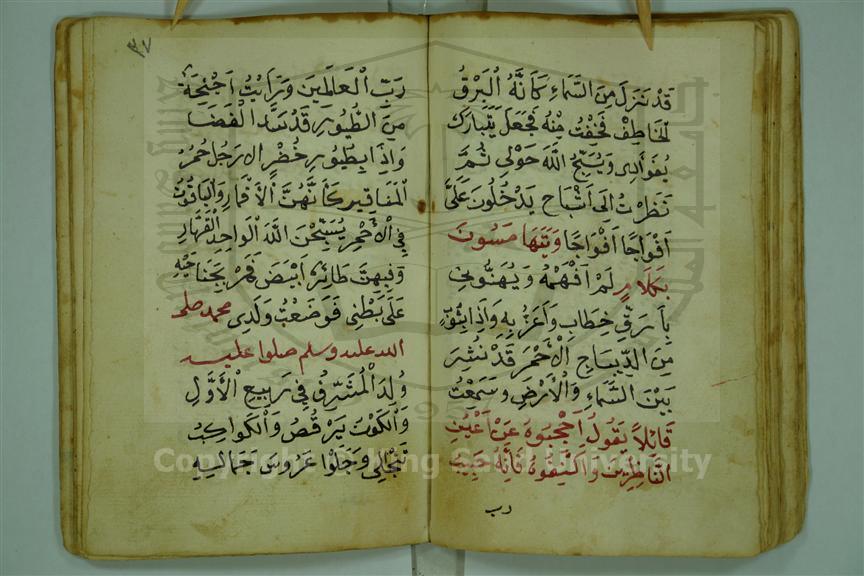 قَدْ نَزَلَ مِنَ السَّمَاءِ كَأَنَّهُ الْبَرْقُ
الْخَاطِفُ فَخِفْتُ مِنْهُ فَجَعَلَ يَتَبَارَكُ
بِفُوَادِي وَيُسَبِّحُ اللَّهَ حَوْلِي ثُمَّ
نَظَرْتُ إِلَى أَشْبَاحٍ يَدْخُلُونَ عَلَيَّ
أَفْوَاجًا أَفْوَاجًا وَيَتَهَامَسُونَ
بِكَلَامٍ لَمْ أَفْهَمْهُ وَيُهَنُّونِي
بِأَرَقِّ خِطَابٍ وَأَعْذَبِهِ وَإِذَا بِثَوْبٍ
مِنَ الدِّيبَاجِ الْأَحْمَرِ قَدْ نُشِرَ
بَيْنَ السَّمَاءِ وَالْأَرْضِ وَسَمِعْتُ
قَائِلًا يَقُولُ احْجُبُوهُ عَنْ أَعْيُنِ
النَّاظِرِينَ وَاكْنُفُوهُ فَإِنَّهُ حَبِيبُ
رب
٣٧
رَبِّ الْعَالَمِينَ وَرَأَيْتُ أَجْنِحَةً
مِنَ الطُّيُورِ قَدْ سَدَّ الْفَضَا
وَإِذَا بِطُيُورٍ خُضْرِ الْأَرْجُلِ حُمْرِ
الْمَنَاقِيرِ كَأَنَّهُنَّ الْأَقْمَارُ وَالْيَاقُوتُ
فِي الْأَحْمَرِ يُسَبِّحْنَ اللَّهَ الْوَاحِدَ الْقَهَّارَ
وَفِيهِنَّ طَائِرٌ أَبْيَضُ فَمَرَّ بِجَنَاحَيْهِ
عَلَى بَطْنِي فَوَضَعْتُ وَلَدِي محمد صلى
الله عليه وسلم صلوا عليه
وُلِدَ الْمُشَرَّفُ فِي رَبِيعِ الْأَوَّلِ
وَالْكَوْنُ يَرْقُصُ وَالْكَوَاكِبُ
تَنْجَلِي وَجَلَوْا عَرُوسَ جَمَالِهِ
Copyright © King Saud University